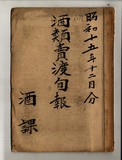 昭和十五年十二月分
酒類賣渡旬報
酒課